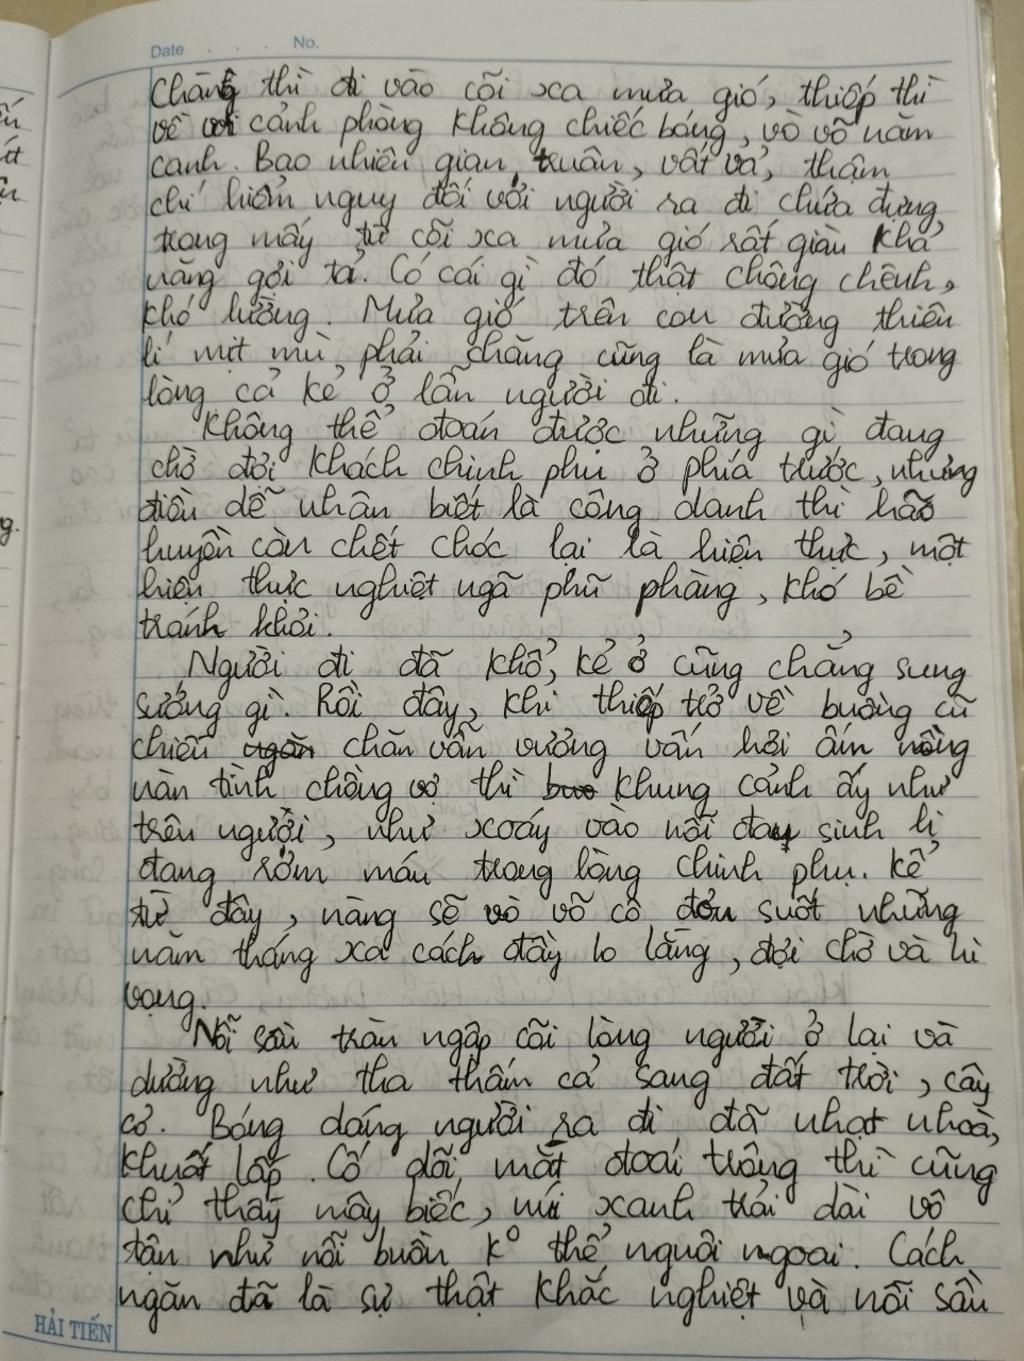 Date . . . No.
Chàng thì đi vào cõi xa mưa gió, thiếp thì
về với cảnh phòng không chiếc bóng, vò võ năm
canh. Bao nhiêu gian truân, vất vả, thậm
chí hiểm nguy đối với người ra đi chứa đựng
trong mấy từ cõi xa mưa gió rất giàu khả
năng gợi tả. Có cái gì đó thật chông chênh,
khó lường. Mưa gió trên con đường thiên
lí mịt mù phải chăng cũng là mưa gió trong
lòng cả kẻ ở lẫn người đi.
Không thể đoán được những gì đang
chờ đợi khách chinh phu ở phía trước, nhưng
điều dễ nhận biết là công danh thì hão
huyền còn chết chóc lại là hiện thực, một
hiện thực nghiệt ngã phũ phàng, khó bề
tránh khỏi.
Người đi đã khổ, kẻ ở cũng chẳng sung
sướng gì. Rồi đây, khi thiếp trở về buồng cũ
chiếu chăn vẫn vương vấn hơi ấm nồng
nàn tình chồng vợ thì khung cảnh ấy như
trêu người, như xoáy vào nỗi đau sinh li
đang rớm máu trong lòng chinh phụ. Kể
từ đây, nàng sẽ vò võ cô đơn suốt những
năm tháng xa cách đầy lo lắng, đợi chờ và hi
vọng.
Nỗi sầu tràn ngập cõi lòng người ở lại và
dường như tha thấm cả sang đất trời, cây
cỏ. Bóng dáng người ra đi đã nhạt nhoà,
khuất lấp. Cố dõi mắt đoái trông thì cũng
chỉ thấy mây biếc, núi xanh trải dài vô
tận như nỗi buồn k° thể nguôi ngoai. Cách
ngăn đã là sự thật khắc nghiệt và nỗi sầu
HẢI TIẾN